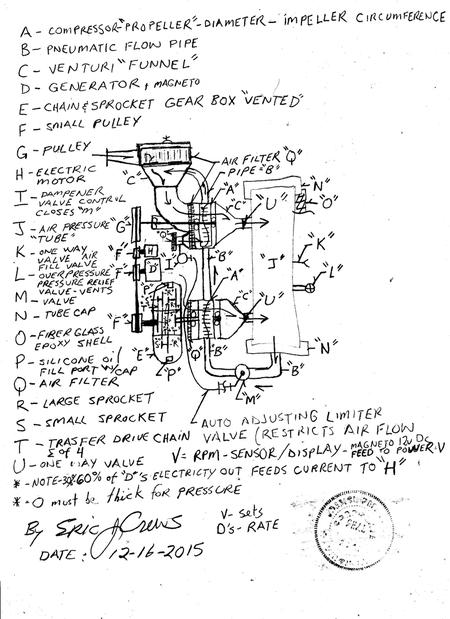 A - COMPRESSOR "PROPELLER" - DIAMETER - IMPELLER CIRCUMFERENCE
B - PNEUMATIC FLOW PIPE
C - VENTURI "FUNNEL"
D - GENERATOR & MAGNETO
E - CHAIN & SPROCKET GEAR BOX "VENTED"
F - SMALL PULLEY
G - PULLEY
H - ELECTRIC
MOTOR
I - DAMPENER
VALVE CONTROL
CLOSES "M"
J - AIR PRESSURE
"TUBE"
K - ONE WAY
VALVE "AIR
FILL VALVE
L - OVERPRESSURE
PRESSURE RELIEF
VALVE - VENTS
M - VALVE
N - TUBE CAP
O - FIBERGLASS
EPOXY SHELL
P - SILICONE OIL
FILL PORT W/CAP
Q - AIR FILTER
R - LARGE SPROCKET
S - SMALL SPROCKET
T - TRASFER DRIVE CHAIN
2 OF 4
U - ONE WAY VALVE
AIR FILTER "Q"
PIPE "B"
"C"
"A"
"C"
"U"
"N"
"O"
"G"
"K"
"J"
"L"
"F"
"H"
"I"
"B"
"F"
"D"
"A"
"C"
"U"
"F"
"E"
"P"
"Q"
"B"
"N"
"B"
"M"
AUTO ADJUSTING LIMITER
VALVE (RESTRICTS AIR FLOW
V = RPM - SENSOR / DISPLAY - MAGNETO 12V DC
FEED TO POWER: V
* - NOTE - 60% OF "D"'S ELECTRICTY OUT FEEDS CURRENT TO "H"
* - O MUST be THICK FOR PRESSURE
By ERIC J Crews
DATE: 12-16-2015
V - sets
D's - RATE